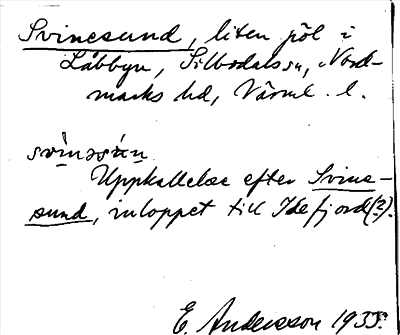 Svinesund, liten pöl i
Låbbyn, Silbodals sn, Nord-
marks hd, Värml. l.
svìnəsún
Uppkallelse efter Svine-
sund, inloppet till Idefjord(?).
E. Andersson 1935.